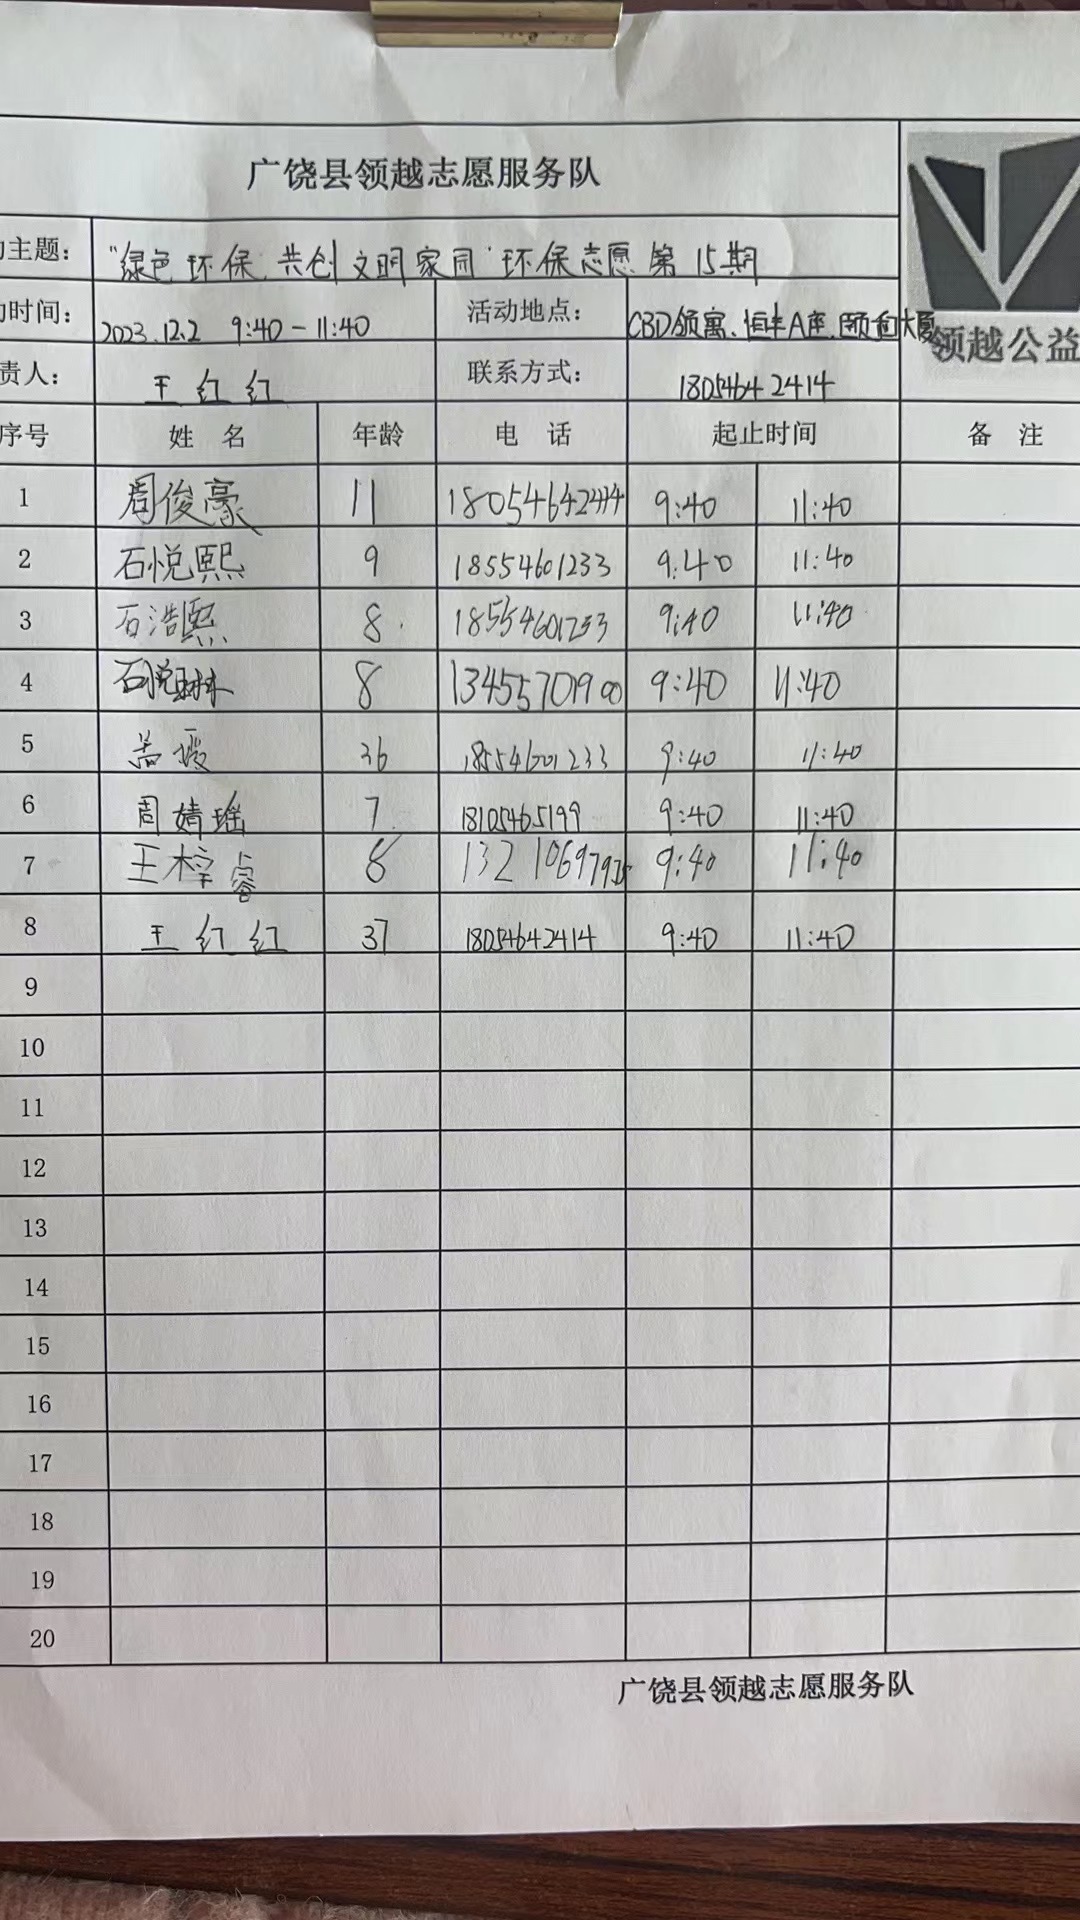 广饶县领越志愿服务队
主题： "绿色环保 共创文明家园"环保志愿第15期
时间： 2023.12.2 9:40-11:40 活动地点： CBD领寓、恒丰A座、大厦
责人： 王红红 联系方式： 18054642414
领越公益
序号 姓名 年龄 电话 起止时间 备注
1 周俊豪 11 18054642414 9:40 11:40
2 石悦熙 9 18554601233 9:40 11:40
3 石浩熙 8 18554601233 9:40 11:40
4 石悦琳 8 13455701900 9:40 11:40
5 36 18554601233 9:40 11:40
6 周婧瑶 7 18105465199 9:40 11:40
7 王梓睿 8 9:40 11:40
8 王红红 37 18054642414 9:40 11:40
9
10
11
12
13
14
15
16
17
18
19
20
广饶县领越志愿服务队